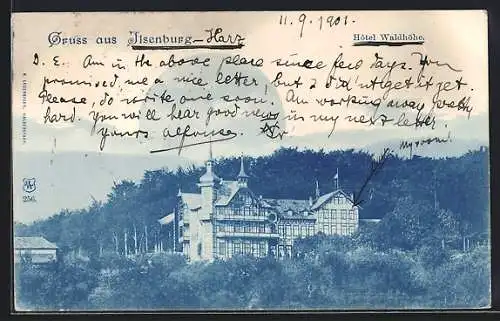 11.9.1901.
Gruss aus Ilsenburg-Harz
Hôtel Waldhöhe.
D. E. Am in the above place since few days. You
promised me a nice letter, but I didn't get it yet.
Please, do write one soon. Am working away pretty
hard. You will hear good news in my next letter.
Yours Alfonse.
my room
256.